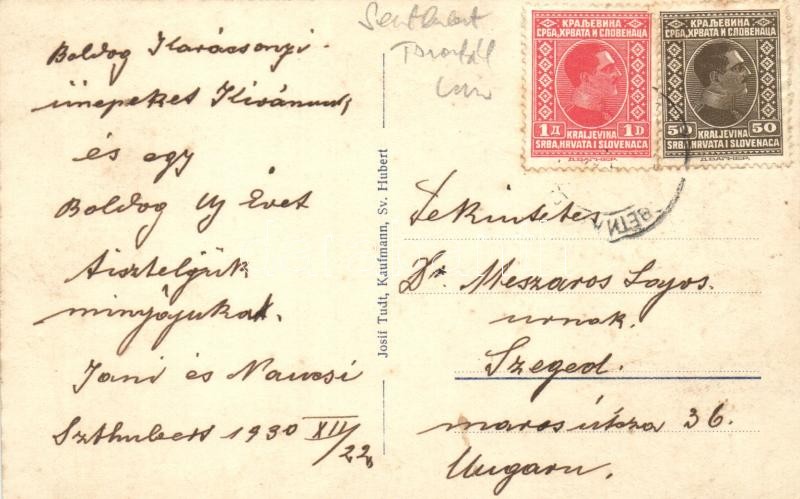 Boldog Karácsonyi
ünepeket Kivánunk
és egy
Boldog Uj Évet
tiszteljük
minyájukat.
Jani és Nawcsi
Szthubert 1930 XII/22
Josif Tudt, Kaufmann, Sv. Hubert
Sentkubert
КРАЉЕВИНА
СРБА, ХРВАТА И СЛОВЕНАЦА
1Д 1D
KRALJEVINA
SRBA, HRVATA I SLOVENACA
Д.ВАГНЕР.
КРАЉЕВИНА
СРБА, ХРВАТА И СЛОВЕНАЦА
50 50
KRALJEVINA
SRBA, HRVATA I SLOVENACA
Д.ВАГНЕР.
СВЕТИ
Tekintetes
Dr. Meszaros Lajos.
urnak.
Szeged.
maros útsza 36.
Ungarn.